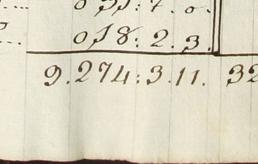 018: 2. 3.
9.274: 3. 11. 32